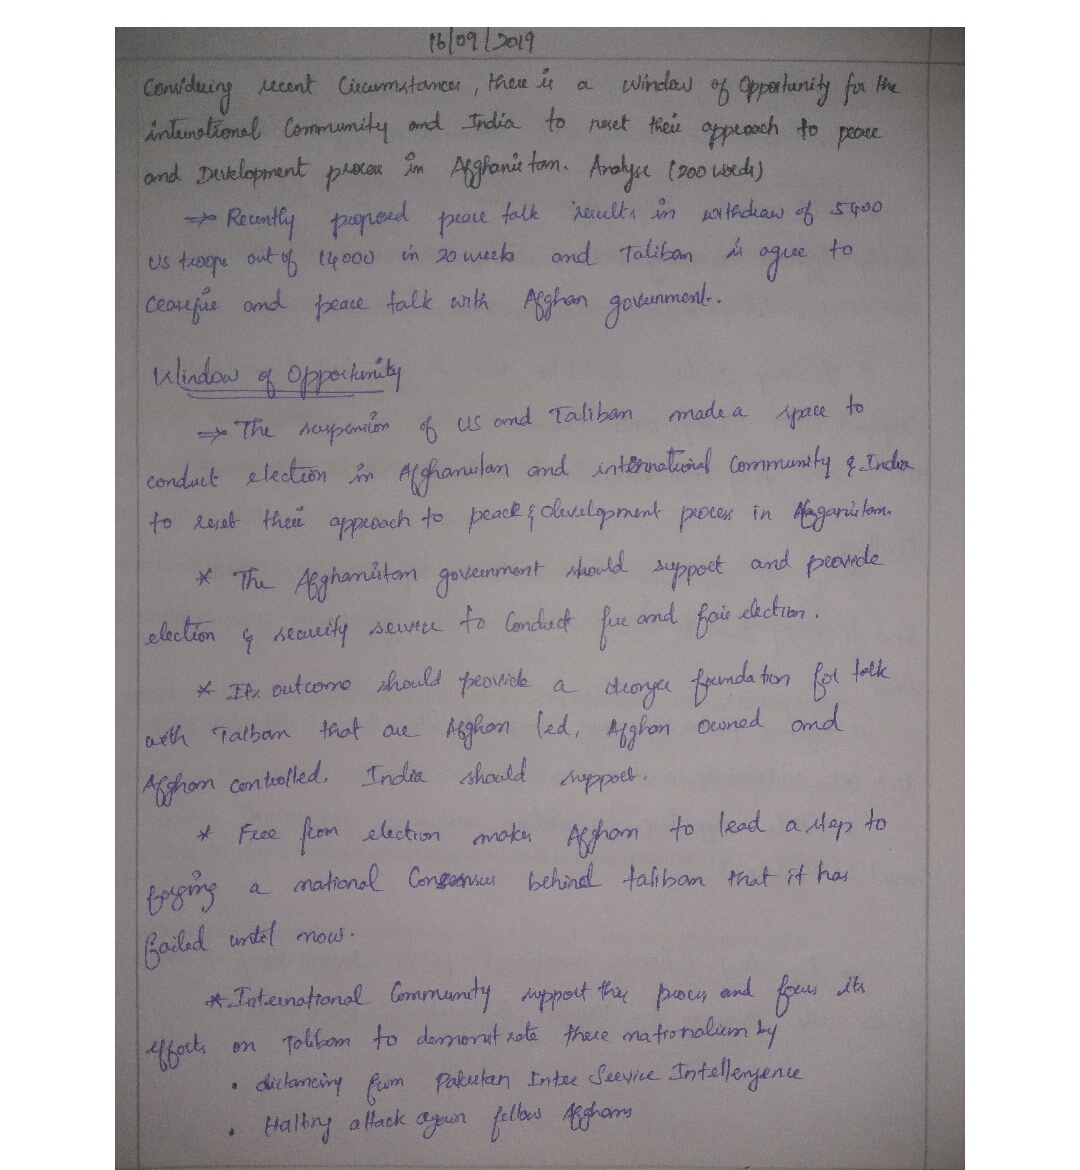 16/09/2019
Considering recent Circumstances, there is a window of Opportunity for the
international Community and India to reset their approach to peace
and Development process in Afghanistan. Analyse (200 words)
⇒ Recently proposed peace talk results in withdraw of 5400
US troops out of 14000 in 20 weeks and Taliban is agree to
ceasefire and peace talk with Afghan government.
Window of Opportunity
⇒ The suspension of US and Taliban made a space to
conduct election in Afghanistan and international Community & India
to reset their approach to peace & development process in Afganistan.
* The Afghanistan government should support and provide
election & security service to Conduct free and fair election.
* Its outcome should provide a stronger foundation for talk
with Talban that are Afghan led, Afghan owned and
Afghan controlled. India should support.
* Free from election makes Afghan to lead a step to
forging a national Consensus behind taliban that it has
failed until now.
* International Community support this process and focus its
efforts on Taliban to demonstrate there nationalism by
• distancing from Pakistan Inter Service Intellengence
• Halting attack again fellow Afghans